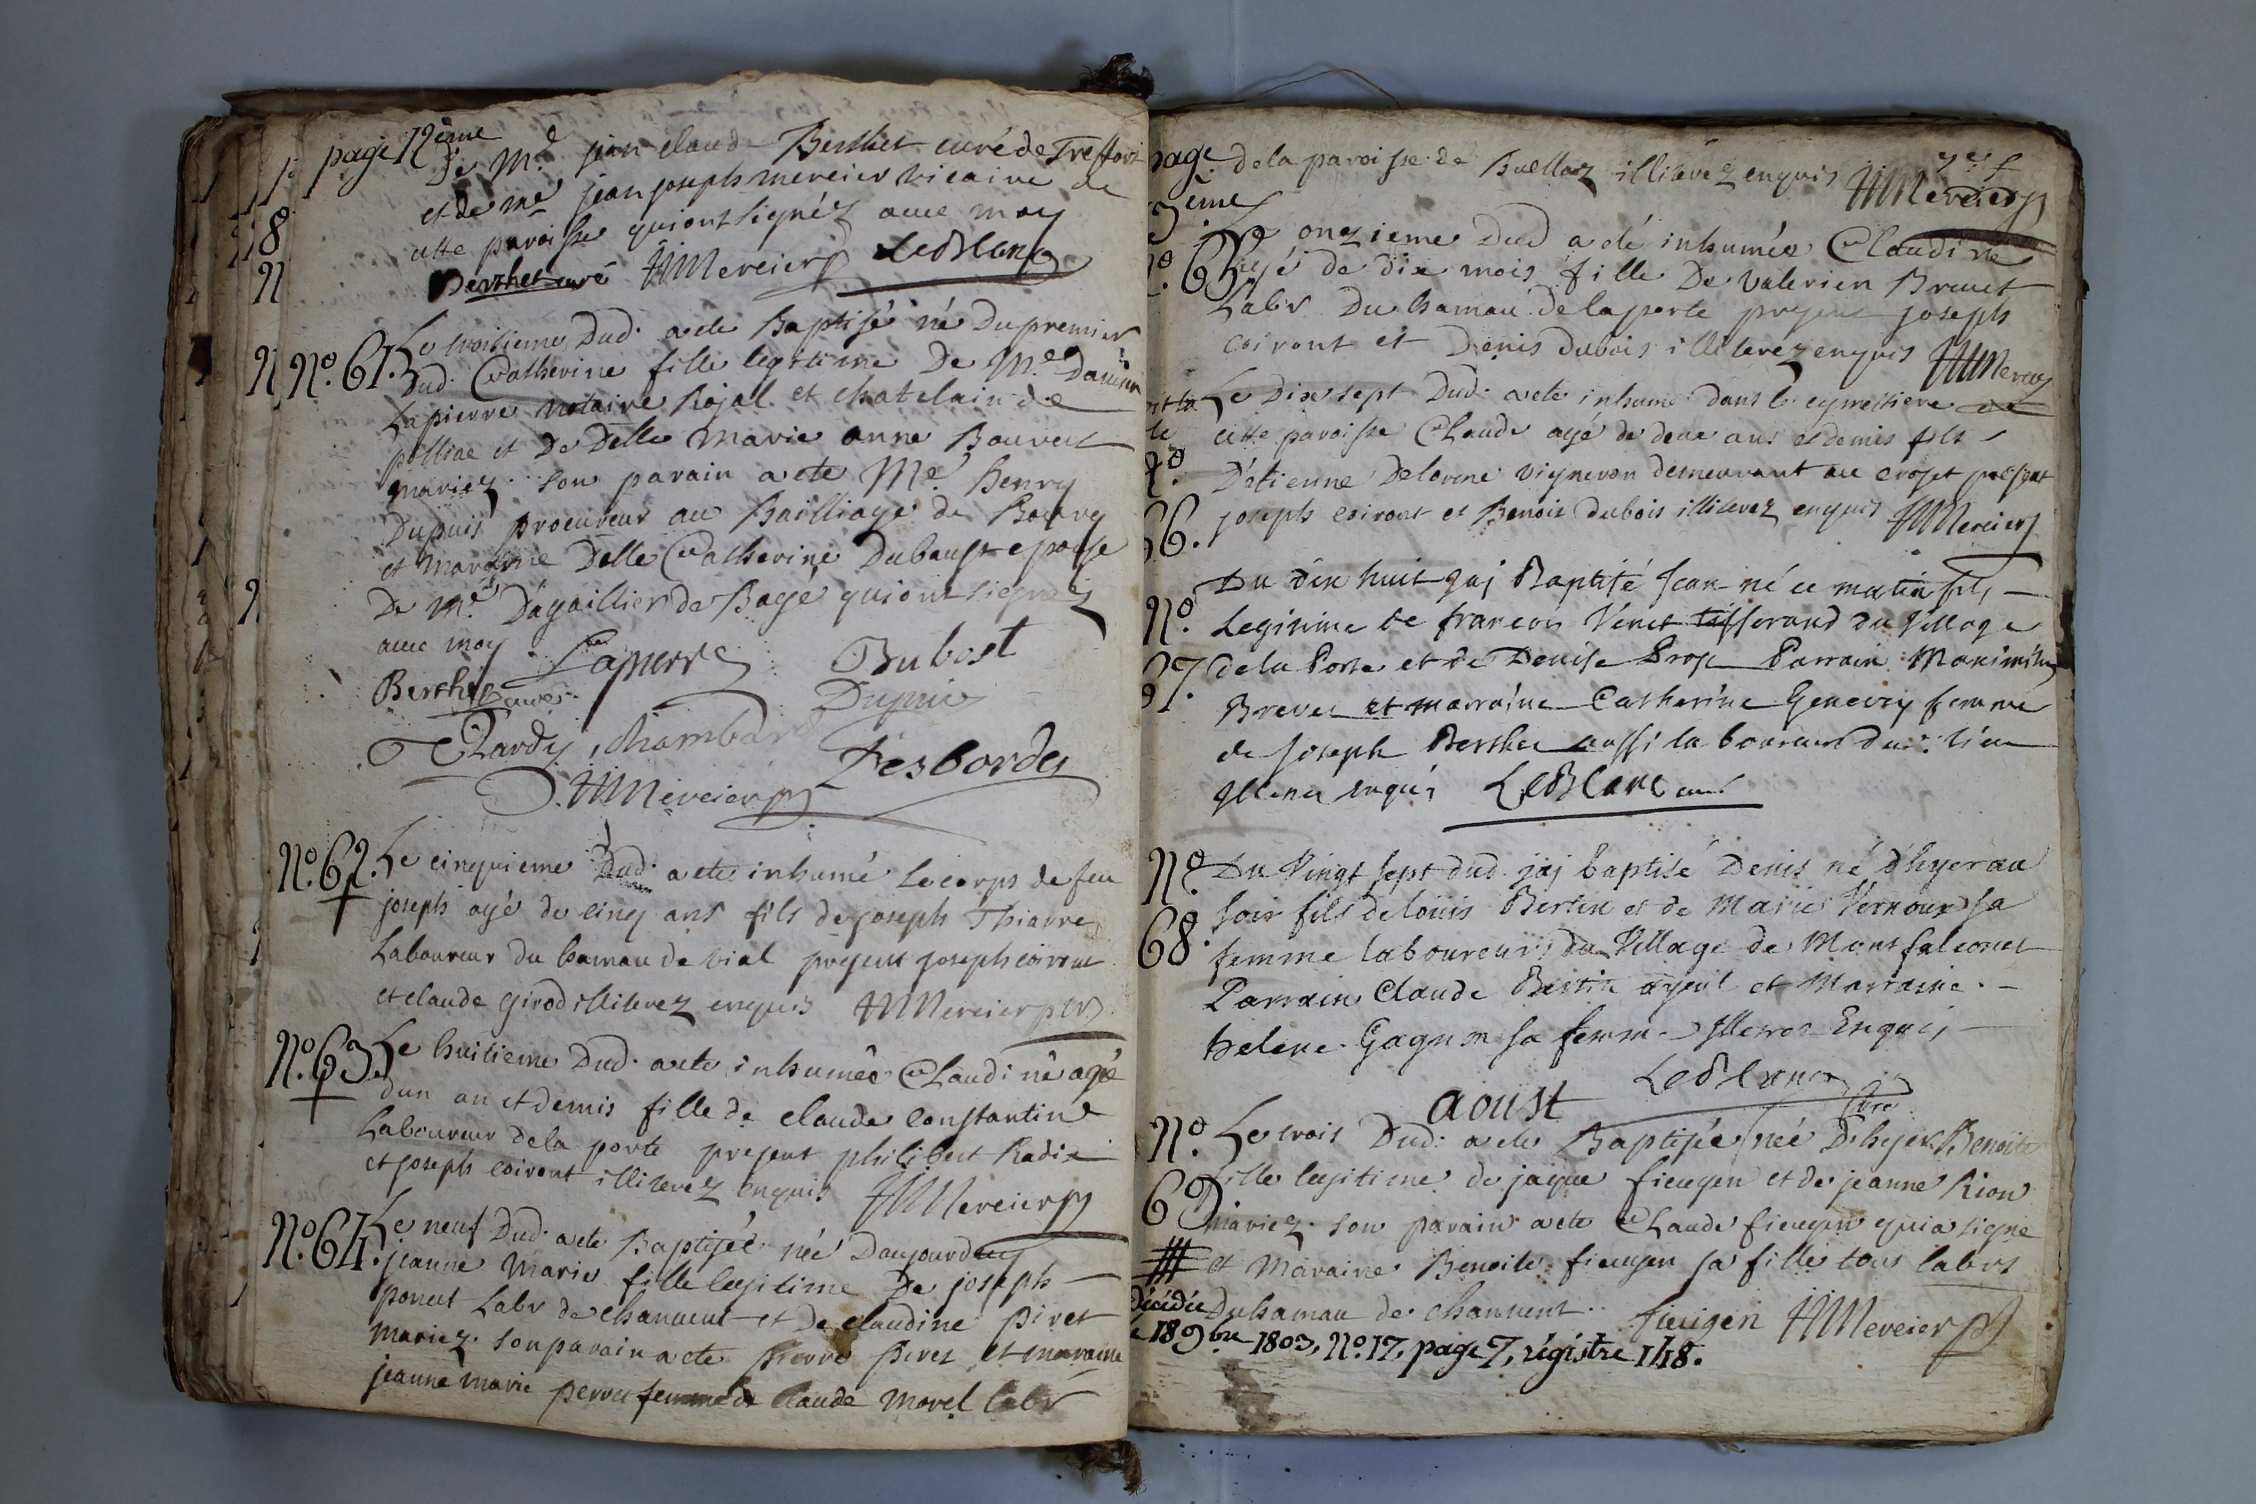 page 12ème
De Mre jean claude Berthet curé de Treffort
et de me jean joseph mercier vicaire de
cette paroisse qui ont signéz avec moy
Berthet curé JJMercier LeBlanc
No. 61. Le troisieme Dud. a ete Baptisé né Du premier
Dud. Catherine fille legitime De Me Damien
Lapierre notaire Rojal et chatelain de
polliac et De Delle marie anne Bouvent
mariez. son parain a ete Me henry
Dupuis procureur au Bailliage de Bourg
et maraine Delle Catherine Dubost epouse
De Me Dagaillier de Bagé qui ont signéz
avec moy Lapierre Bubost
Berthet curé Dupuis
Tardy, Chambard Desbordes
JJMercier
No. 62. Le cinquieme Dud. a ete inhumé Le corps de feu
joseph agé de cinq ans fils de joseph Thiavre
Laboureur du hamau de vial present joseph coiront
et claude girod illiterez enquis JJMercier
No. 63. Le huitieme Dud. a ete inhumée Claudine agé
dun an et demis fille de claude Constantin
Laboureur de la porte present philibert Radix
et joseph coiront illiterez enquis JJMercier
No. 64. Le neuf Dud. a ete Baptisée née Daujourduy
jeanne marie fille legitime De joseph
poncet Labr de chanvent et de claudine piret
mariez. son parain a ete pierre piret et maraine
jeanne marie perret femme de claude morel labr
page de la paroisse de Buellaz illiterez enquis JJMercier
Le onzieme Dud a eté inhumée Claudine
65 agé de dix mois fille De valerien Brevet
Labr Du hamau de la porte present joseph
coiront et Denis dubois illiterez enquis JJMercier
Le Dix sept Dud. a ete inhumé dans le cymettiere de
cette paroisse Claude agé de deux ans et demis fils
66. D'etienne Delorme vigneron demeurant au crozet present
joseph coiront et Benoit dubois illiterez enquis JJMercier
Du dix huit jaj Baptisé Jean né ce matin fils
No. Legitime de francois Venet tisserand du Village
67. de la Porte et de Denise Prost Parrain Maximilien
Brevet et marraine Catherine Genevey femme
de Joseph Berthet aussi laboureur dud. lieu
Illeres enquis LeBlanc curé
No. Du Vingt sept dud. jaj baptisé Denis né d'hyer au
68. soir fils de loüis Bertin et de Marie Vernoux sa
femme laboureurs du Village de Montfalconet
Parrain Claude Bertin ayeul et Marraine
helene Gagnon sa femme Illeres Enquis
LeBlanc curé
aoust
No. Le trois Dud. a ete Baptisée née D'hyer Benoite
69 fille legitime de jaque fieugen et de jeanne Rion
mariez. son parain a ete Claude fieugen qui a signe
et Maraine Benoite fieugen sa fille tous labrs
Duhamau de chanvent. fieugen JJMercier
Décédée
le 18 9bre 1803, No. 17, page 7, régistre 148.